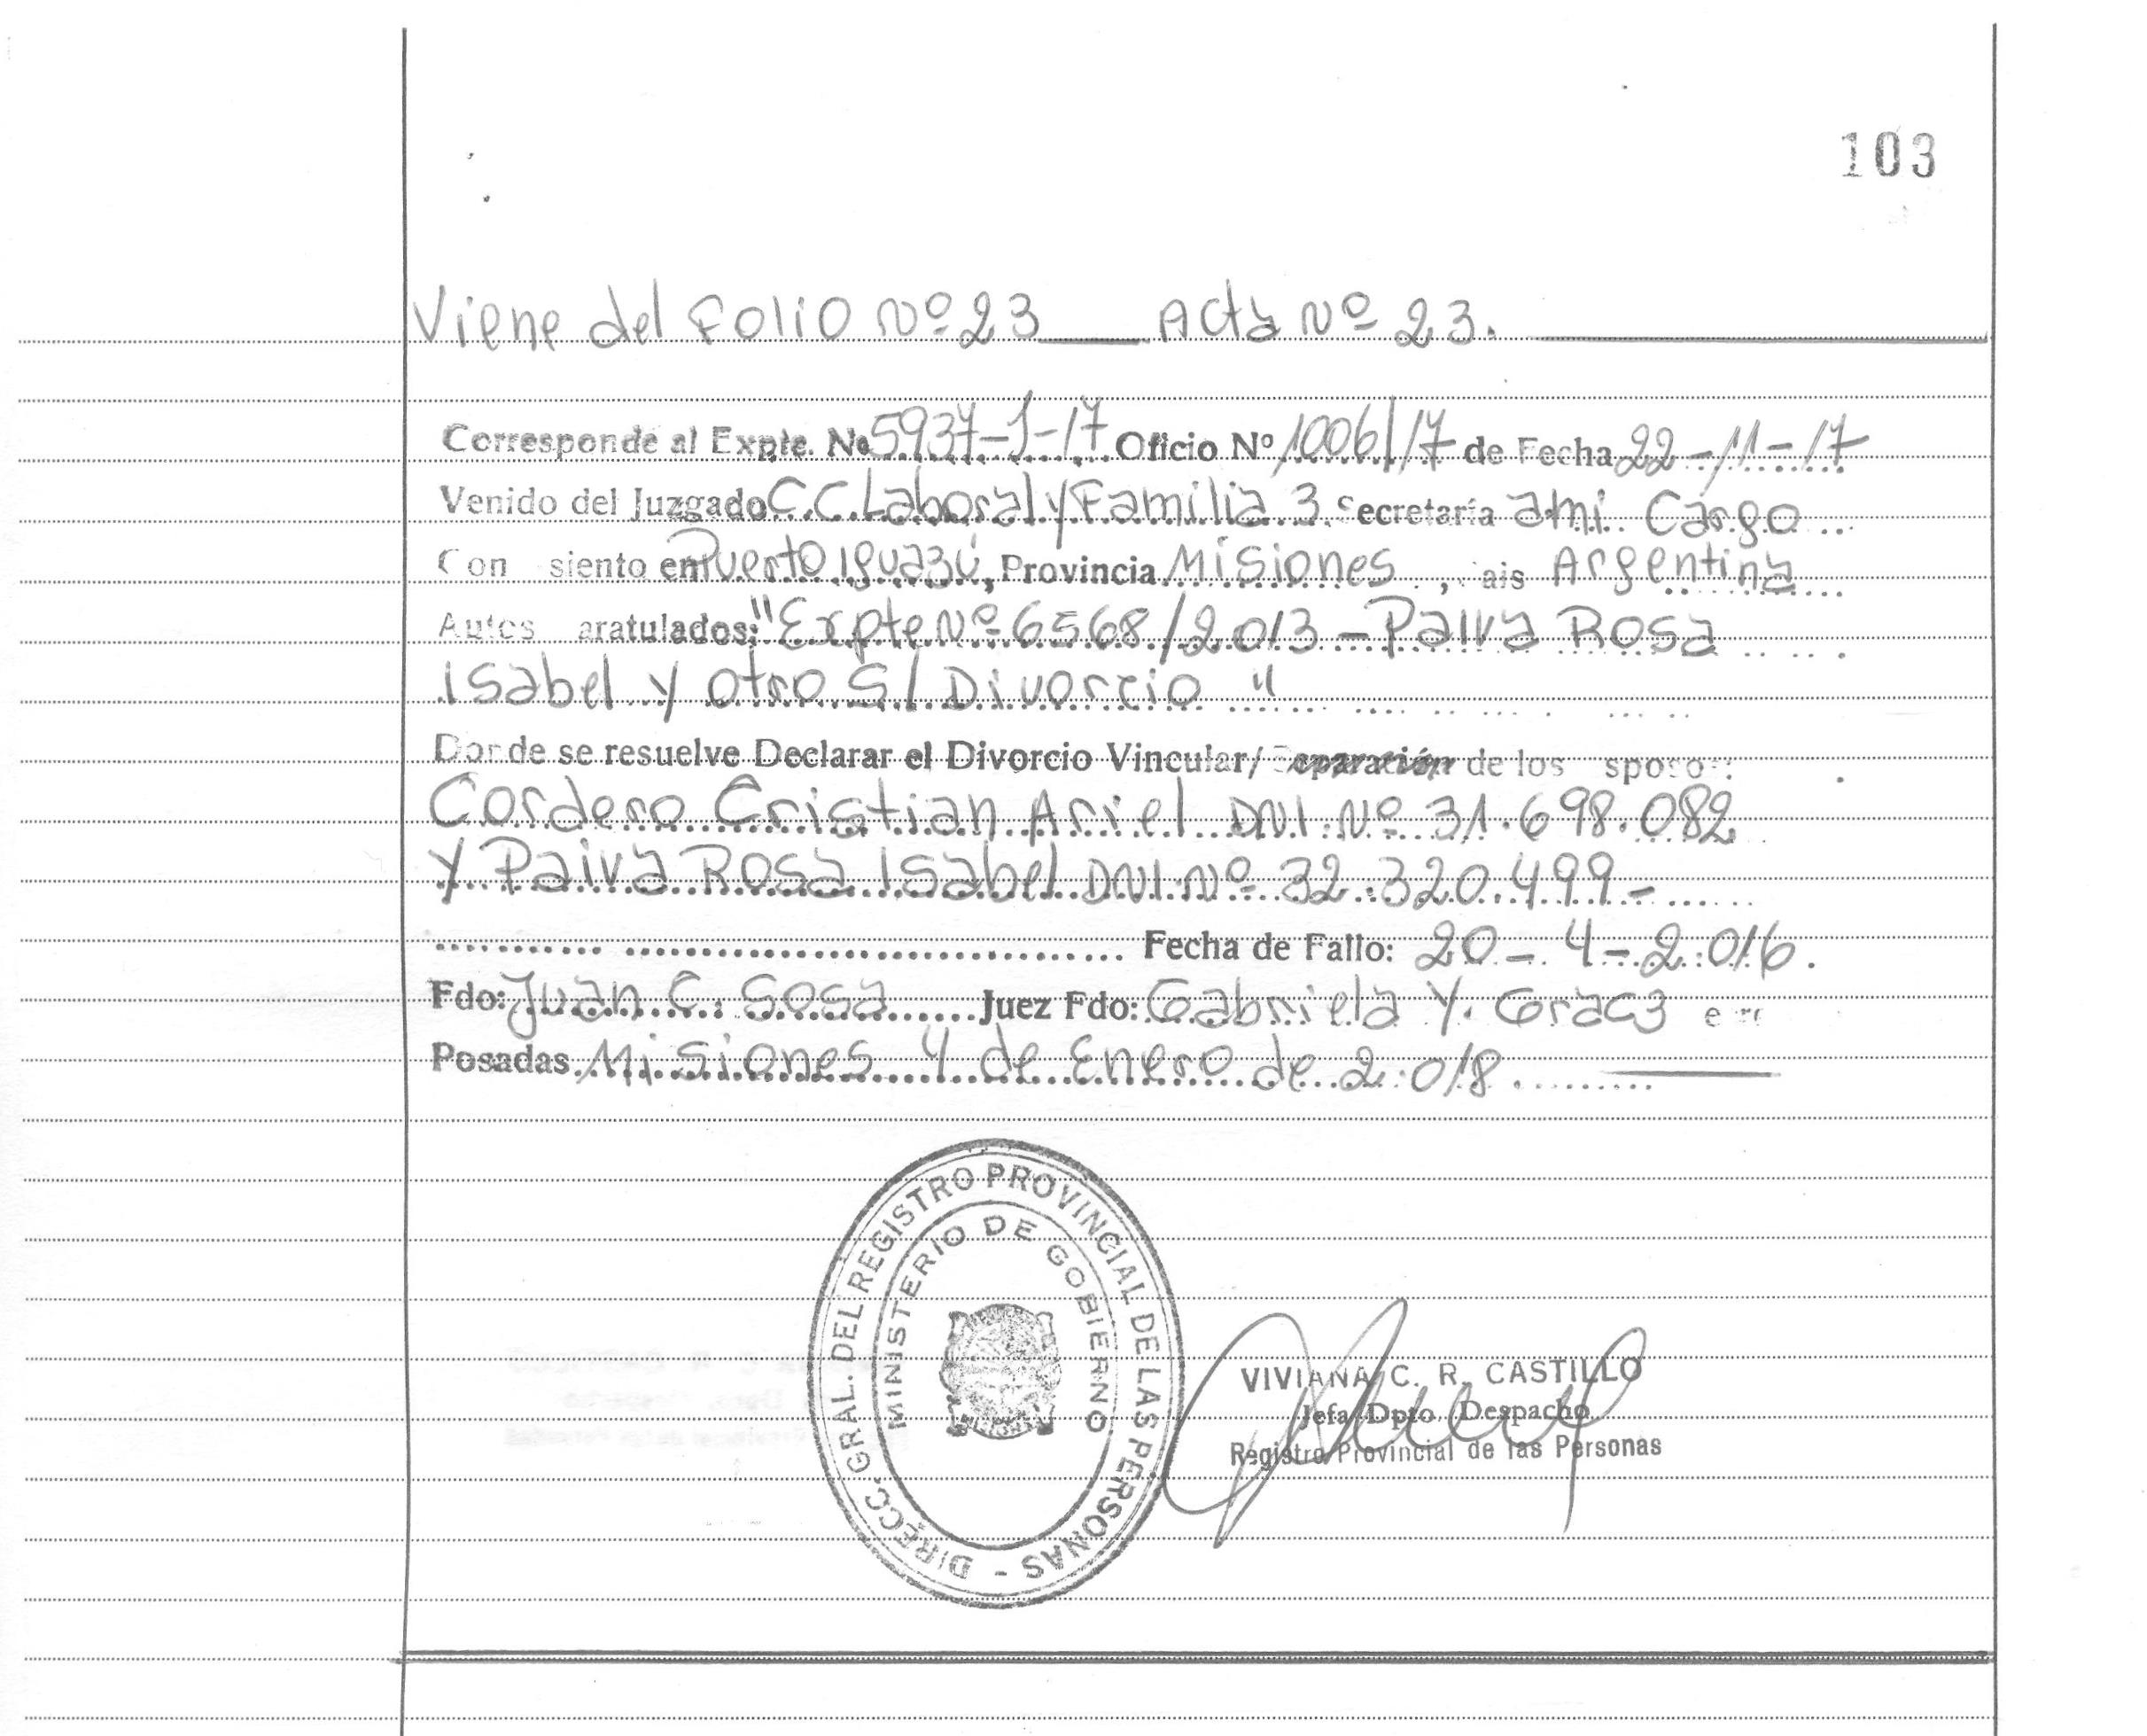 103
Viene del Folio Nº 23 ___ Acta Nº 23.
Corresponde al Expte. No 5937-1-17 Oficio Nº 1006/17 de Fecha 22-11-17
Venido del Juzgado C.C. Laboral y Familia 3 Secretaría ami Cargo
Con siento en Puerto Iguazú, Provincia Misiones, ais Argentina
Autos aratulados: "Expte Nº 6568/2013 - Paiva Rosa
Isabel y otro S/ Divorcio "
Donde se resuelve Declarar el Divorcio Vincular/ Separación de los sposos:
Cordero Cristian Ariel DNI Nº 31.698.082
y Paiva Rosa Isabel DNI Nº 32.320.499-
Fecha de Fallo: 20-4-2.016.
Fdo: Juan C. Sosa Juez Fdo: Gabriela Y. Gracz
Posadas Misiones 4 de Enero de 2.018
DIRECC. GRAL. DEL REGISTRO PROVINCIAL DE LAS PERSONAS -
MINISTERIO DE GOBIERNO
VIVIANA C. R. CASTILLO
Jefa Dpto. Despacho
Registro Provincial de las Personas